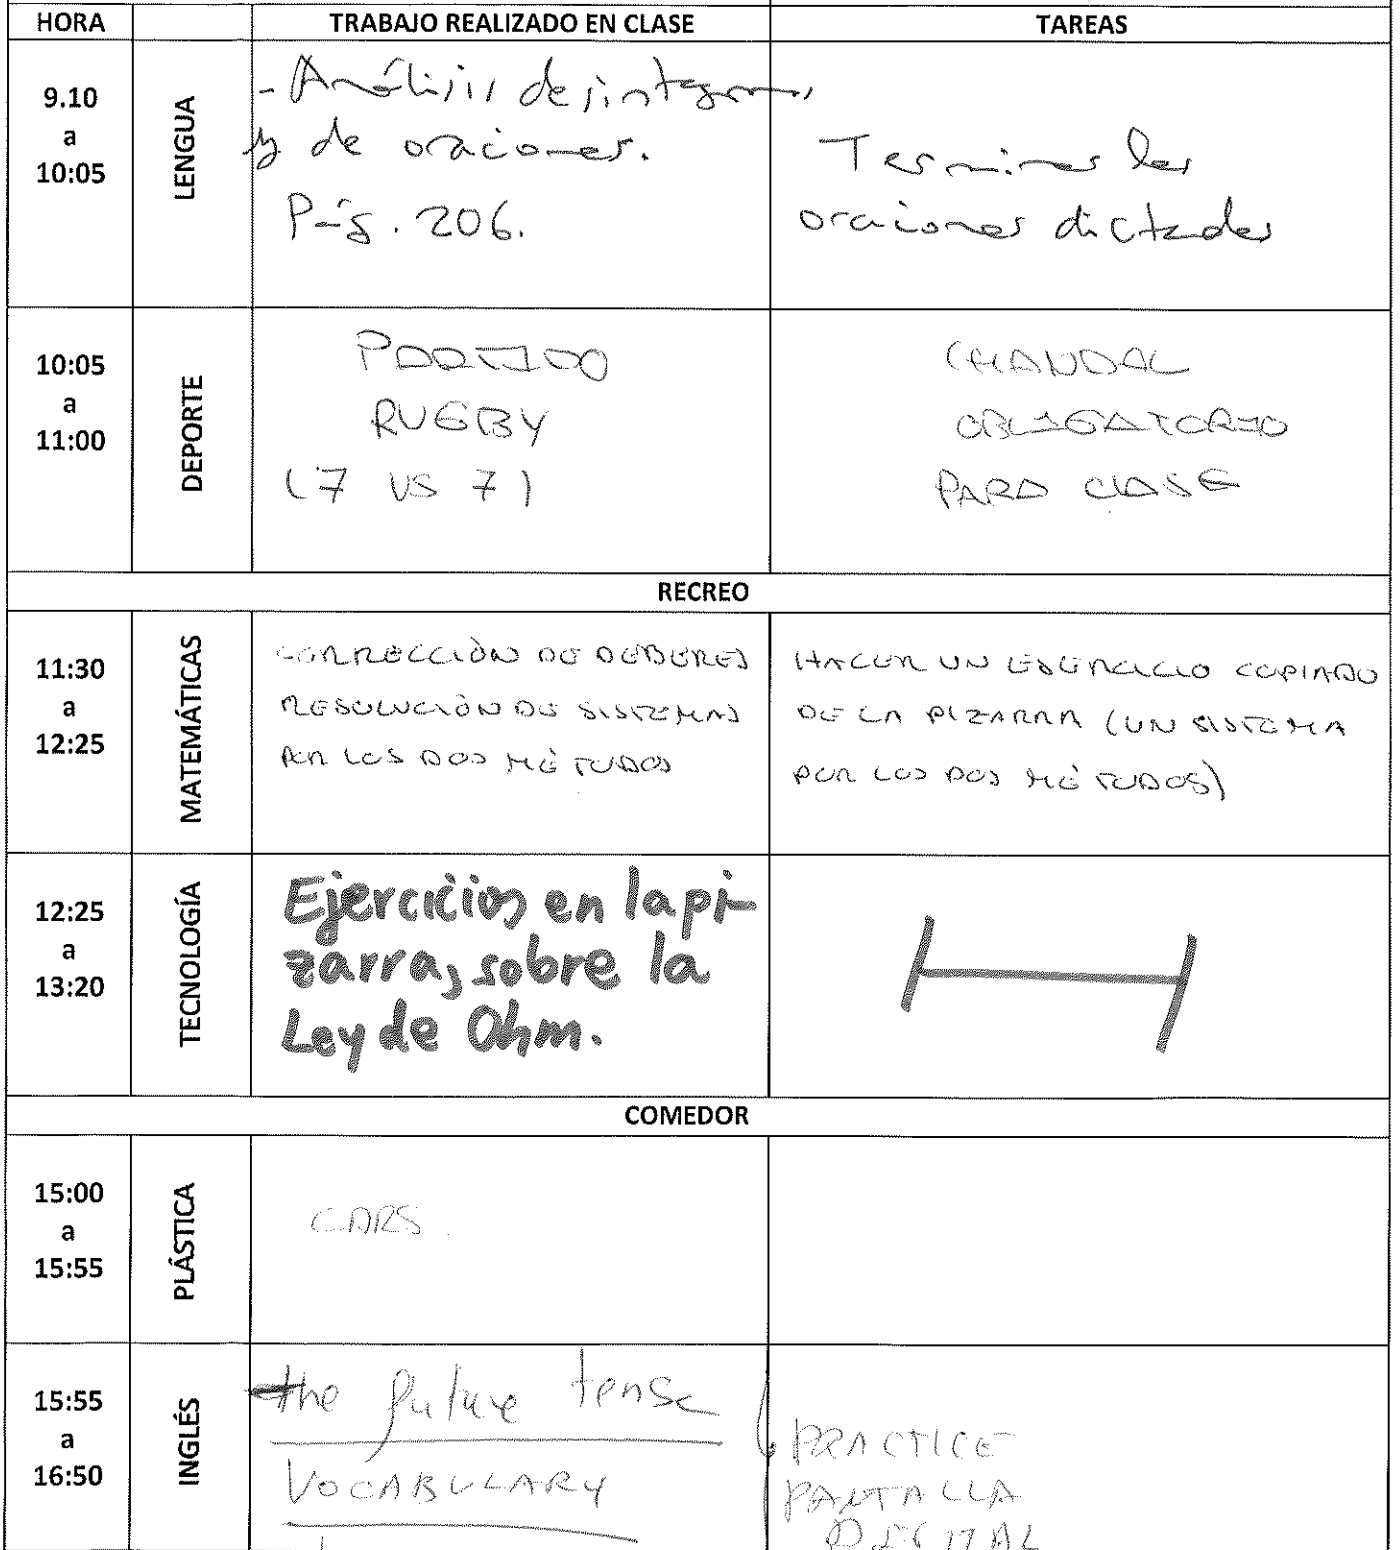 HORA TRABAJO REALIZADO EN CLASE TAREAS
9.10
a
10:05
LENGUA
- Análisis de sintagmas
y de oraciones.
Pág. 206.
Terminar las
oraciones dictadas
10:05
a
11:00
DEPORTE
PARTIDO
RUGBY
(7 VS 7)
CHANDAL
OBLIGATORIO
PARA CLASE
RECREO
11:30
a
12:25
MATEMÁTICAS
CORRECCIÓN DE DEBERES
RESOLUCIÓN DE SISTEMAS
POR LOS DOS MÉTODOS
HACER UN EJERCICIO COPIADO
DE LA PIZARRA (UN SISTEMA
POR LOS DOS MÉTODOS)
12:25
a
13:20
TECNOLOGÍA
Ejercicios en la pi-
zarra, sobre la
Ley de Ohm.
COMEDOR
15:00
a
15:55
PLÁSTICA
CARS.
15:55
a
16:50
INGLÉS
the future tense
VOCABULARY
PRACTICE
PANTALLA
DIGITAL